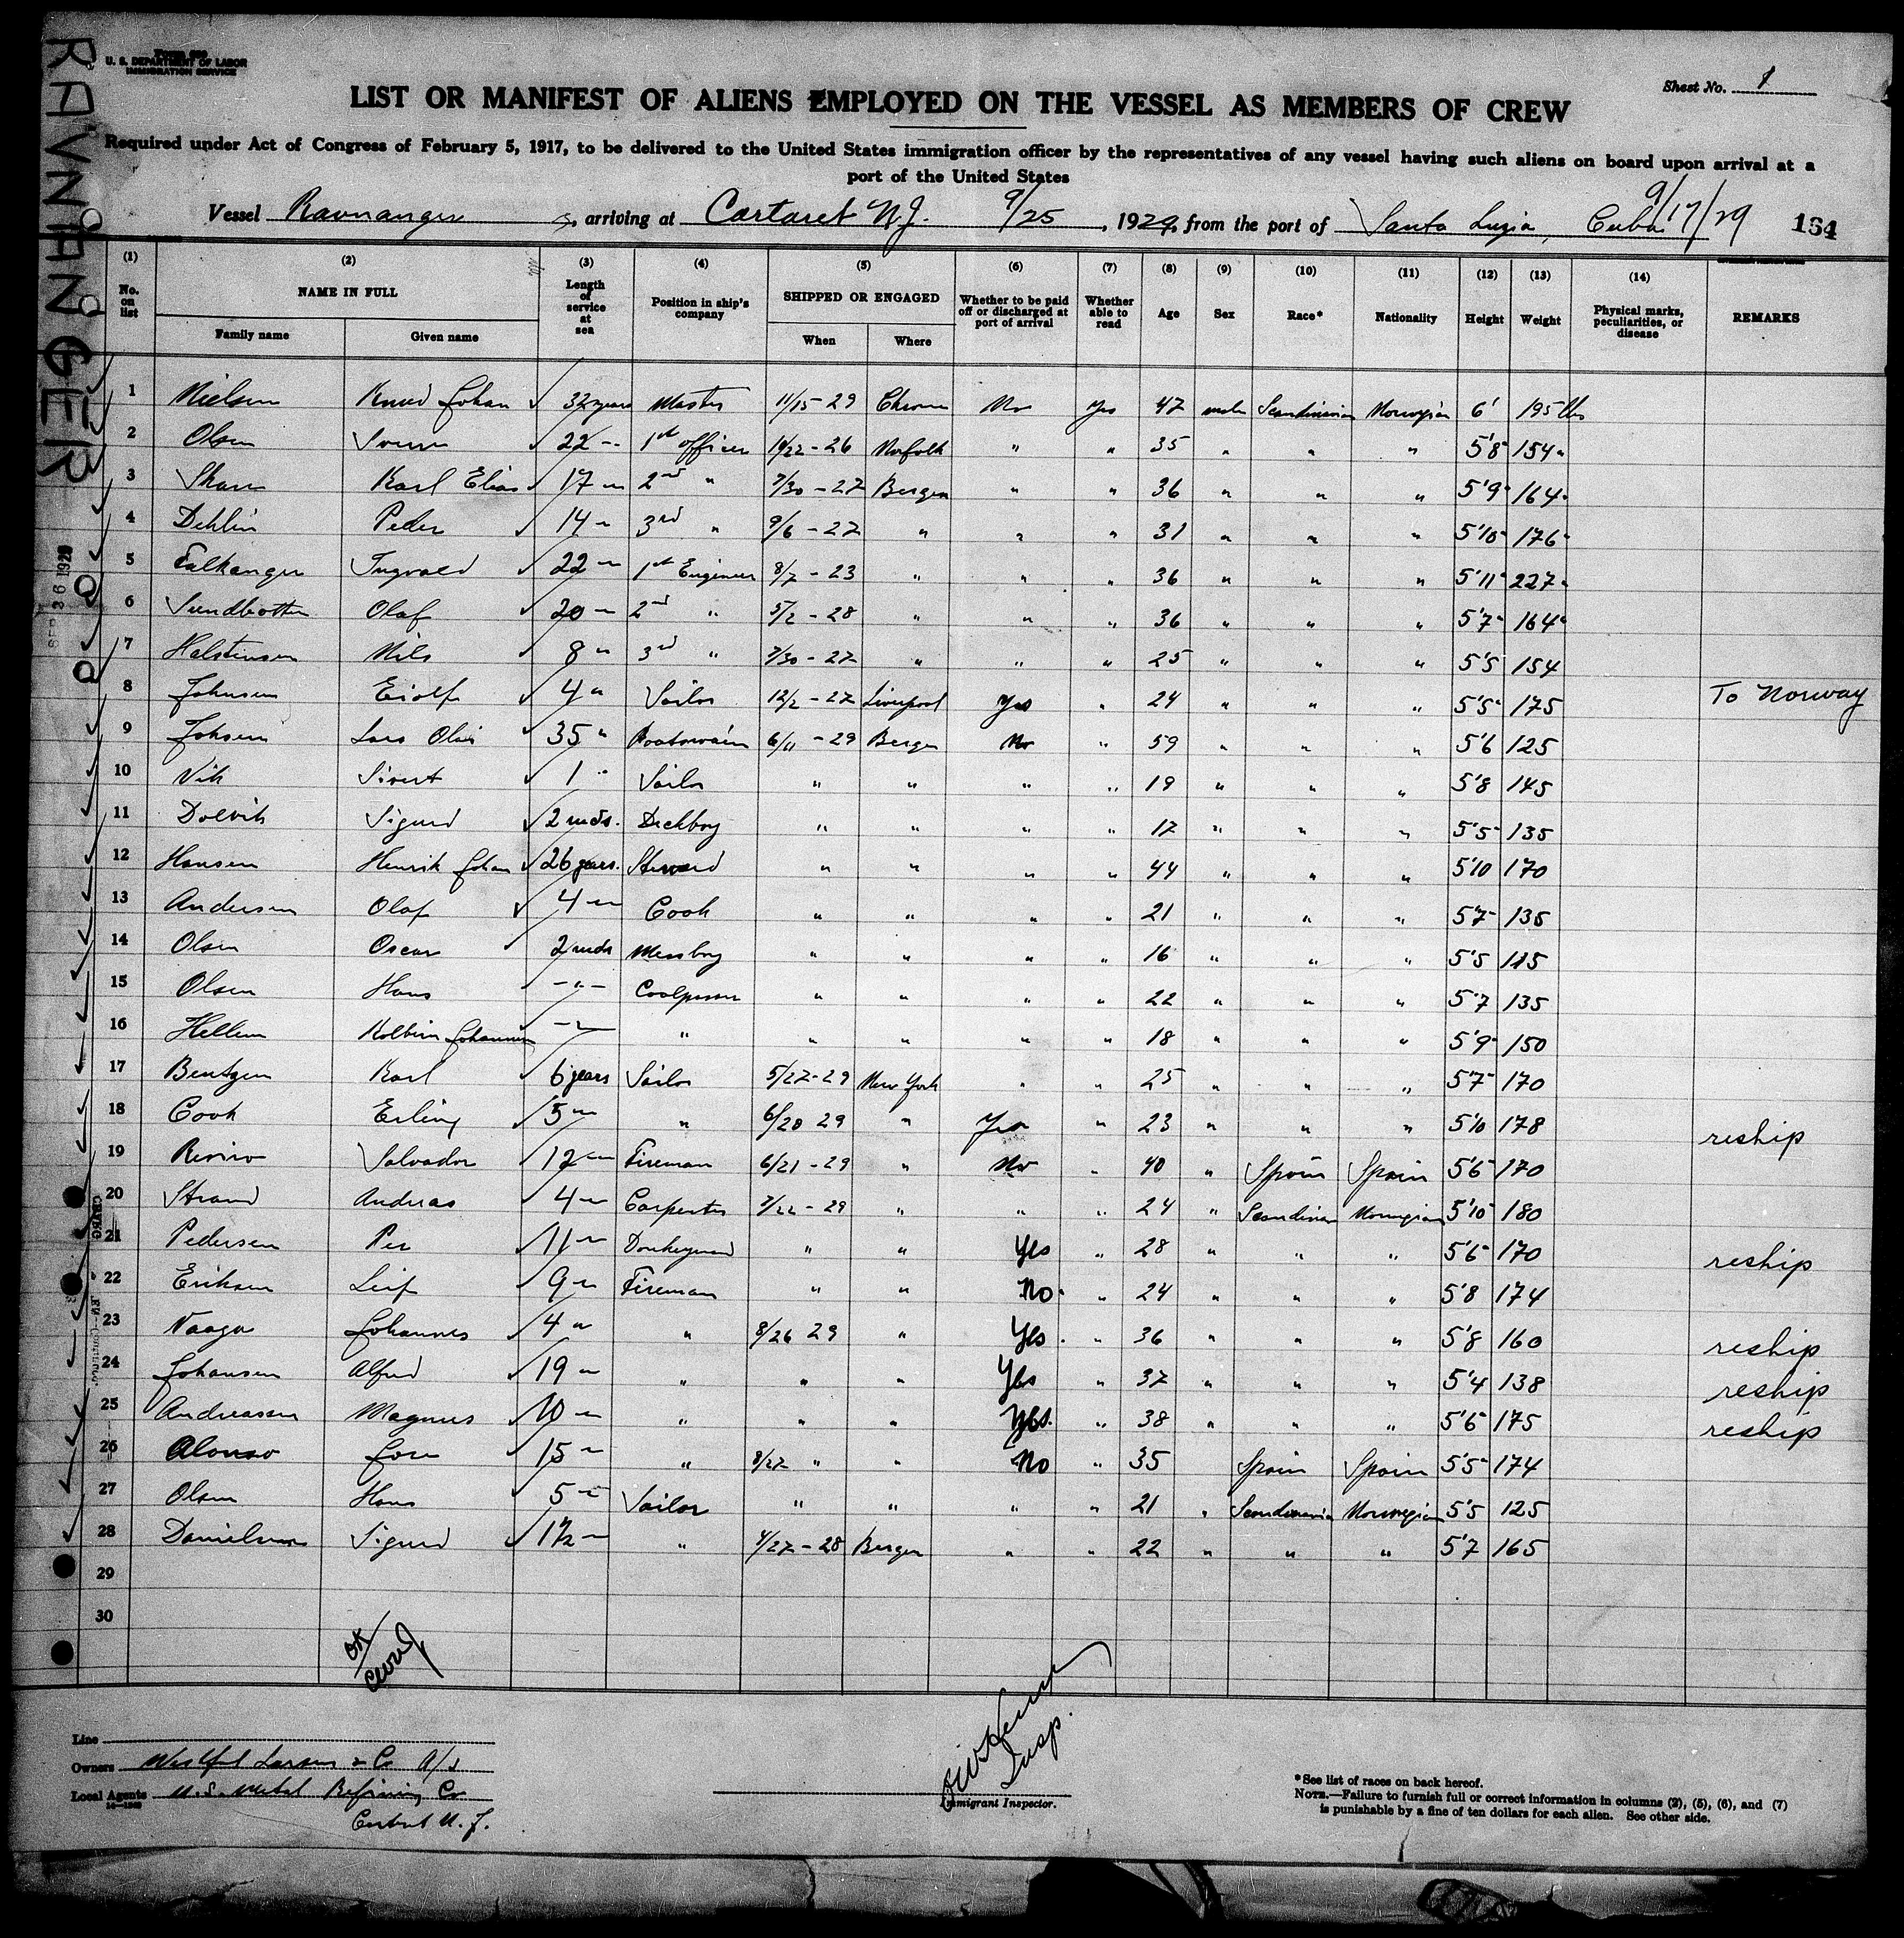 RAVNANGER
Form 680
U. S. DEPARTMENT OF LABOR
IMMIGRATION SERVICE
Sheet No. 1
LIST OR MANIFEST OF ALIENS EMPLOYED ON THE VESSEL AS MEMBERS OF CREW
Required under Act of Congress of February 5, 1917, to be delivered to the United States immigration officer by the representatives of any vessel having such aliens on board upon arrival at a
port of the United States
Vessel Ravnanger, arriving at Cartaret N.J. 9/25, 1929, from the port of Santa Luzia, Cuba 9/17/29 164
(1) (2) (3) (4) (5) (6) (7) (8) (9) (10) (11) (12) (13) (14)
No. on list NAME IN FULL Family name Given name Length of service at sea Position in ship's company SHIPPED OR ENGAGED When Where Whether to be paid off or discharged at port of arrival Whether able to read Age Sex Race* Nationality Height Weight Physical marks, peculiarities, or disease REMARKS
1 Nielsen Knud Johan 32 years Master 11/15 29 No Yes 47 male Scandinavian Norwegian 6' 195 lbs
2 Olsen 22 " 1st officer 10/22-26 Norfolk " " 35 " " " 5'8 154 "
3 Karl Elias 17 " 2nd " 7/30-27 Bergen " " 36 " " " 5'9 164 "
4 Dehlin Peder 14 " 3rd " 9/6-27 " " " 31 " " " 5'10 176 "
5 Falkanger Ingvald 22 " 1st Engineer 8/7-23 " " " 36 " " " 5'11 227 "
6 Sundbotten Olaf 20 " 2nd " 5/2-28 " " " 36 " " " 5'7 164 "
7 Halstensen Nils 8 " 3rd " 7/30-27 " " " 25 " " " 5'5 154
8 Johnsen Eiolf 4 " Sailor 12/2-27 Liverpool Yes " 24 " " " 5'5 175 To Norway
9 Johsen Lars Olai 35 " Boatswain 6/11-29 Bergen No " 59 " " " 5'6 125
10 Vik Sivert 1 " Sailor " " " " 19 " " " 5'8 145
11 Dolvik Sigurd 2 mds. Deckboy " " " " 17 " " " 5'5 135
12 Hansen Henrik Johan 26 years. Steward " " " " 44 " " " 5'10 170
13 Andersen Olaf 4 " Cook " " " " 21 " " " 5'7 135
14 Olsen Oscar 2 mds Messboy " " " " 16 " " " 5'5 115
15 Olsen Hans - " - Coalpasser " " " " 22 " " " 5'7 135
16 Hellem Kolbein Johannes - " - " " " " " 18 " " " 5'9 150
17 Bentzen Karl 6 years Sailor 5/27-29 New York " " 25 " " " 5'7 170
18 Cook Erling 5 " " 6/20 29 " Yes " 23 " " " 5'10 178 reship
19 Salvador 12 " Fireman 6/21-29 " No " 40 " Spain Spain 5'6 170
20 Strand Andreas 4 " Carpenter 7/22-29 " " " 24 " Scandinav Norwegian 5'10 180
21 Pedersen Per 11 " Donkeyman " " Yes " 28 " " " 5'6 170 reship
22 Eriksen Leif 9 " Fireman " " No " 24 " " " 5'8 174
23 Vaage Johannes 4 " " 8/26 29 " Yes " 36 " " " 5'8 160 reship
24 Johansen Alfred 19 " " " " Yes " 37 " " " 5'4 138 reship
25 Andreassen Magnus 10 " " " " Yes " 38 " " " 5'6 175 reship
26 Alonso Jose 15 " " 8/27 " " No " 35 Spain Spain 5'5 174
27 Olsen Hans 5 " Sailor " " " " 21 " Scandinavia Norwegian 5'5 125
28 Danielsen Sigurd 1½ " " 4/27-28 Bergen " " 22 " " " 5'7 165
29
30
OK
Line
Owners Westfal Larsen & Co A/S
Local Agents U.S. Metal Refining Co
N. J.
Insp.
Immigrant Inspector.
*See list of races on back hereof.
NOTE.—Failure to furnish full or correct information in columns (2), (5), (6), and (7)
is punishable by a fine of ten dollars for each alien. See other side.